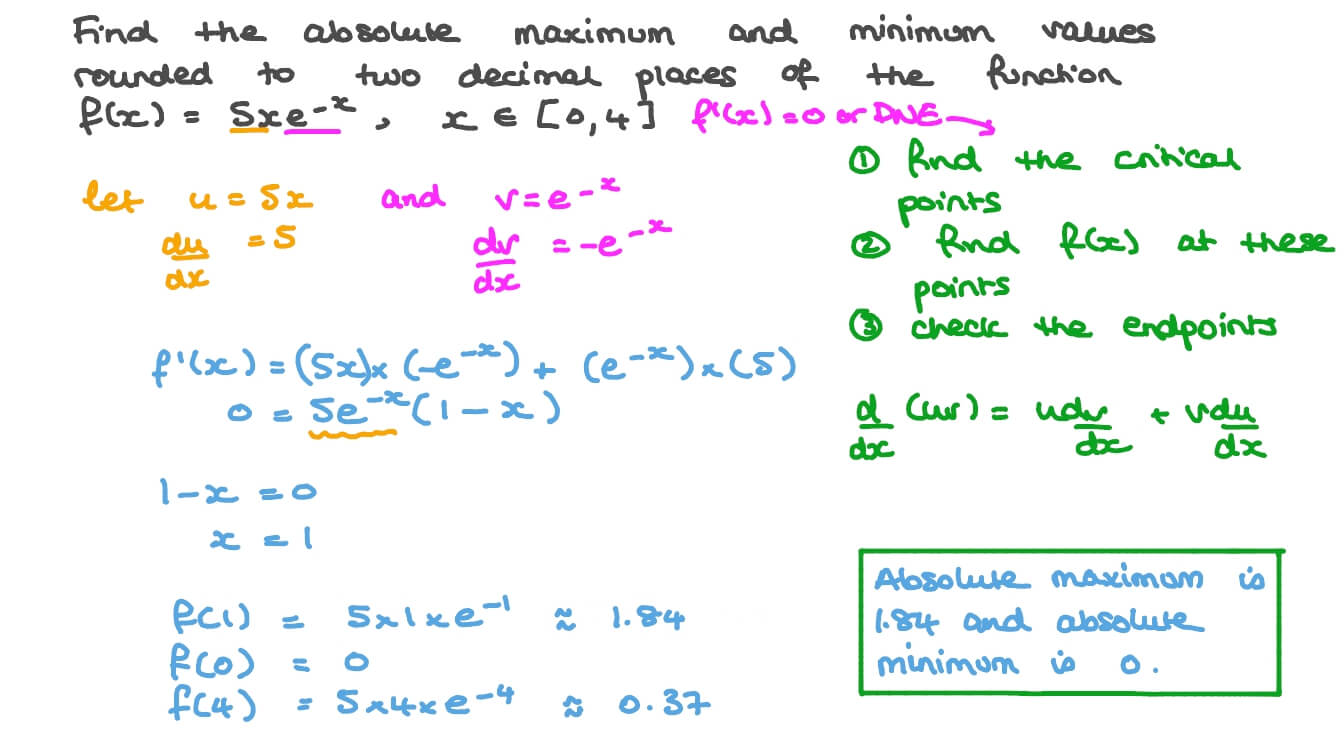 Find the absolute maximum and minimum values
rounded to two decimal places of the function
f(x) = 5xe^{-x}, x ∈ [0,4] f'(x)=0 or DNE →
① find the critical
points
② find f(x) at these
points
③ check the endpoints
let u = 5x and v = e^{-x}
du/dx = 5 dv/dx = -e^{-x}
f'(x) = (5x)×(-e^{-x}) + (e^{-x})×(5)
0 = 5e^{-x}(1-x)
d/dx (uv) = u dv/dx + v du/dx
1-x = 0
x = 1
f(1) = 5×1×e^{-1} ≈ 1.84
f(0) = 0
f(4) = 5×4×e^{-4} ≈ 0.37
Absolute maximum is
1.84 and absolute
minimum is 0.